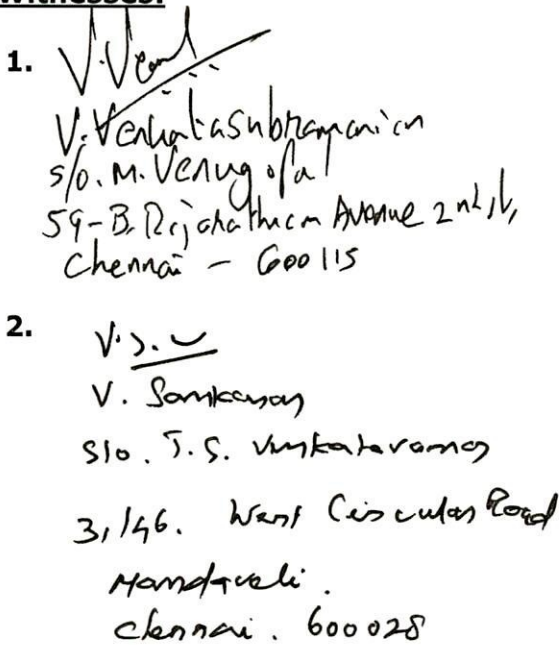 Witnesses:
1.
V. Venkatasubramanian
S/o. M. Venugopal
59-B, Avenue
Chennai - 600115
2.
V. Sankaran
S/o. T.S. Venkataraman
3/46. West Circular Road
Mandaveli.
Chennai. 600028